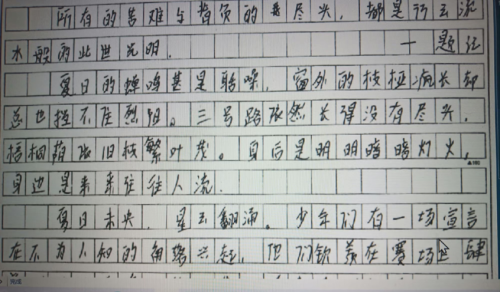 所有的苦难与背负的尽头，都是行云流
水般的此世光明。 —题记
夏日的蝉鸣甚是聒噪，窗外的枝桠疯长却
总也挡不住烈阳。三号路依然长得没有尽头，
梧桐稍依旧枝繁叶茂。身后是明明暗暗灯火，
身边是来来往往人流。
夏日未央，星云翻涌。少年们有一场宣言
在不为人知的角落兴起，他们钦羡在赛场上肆